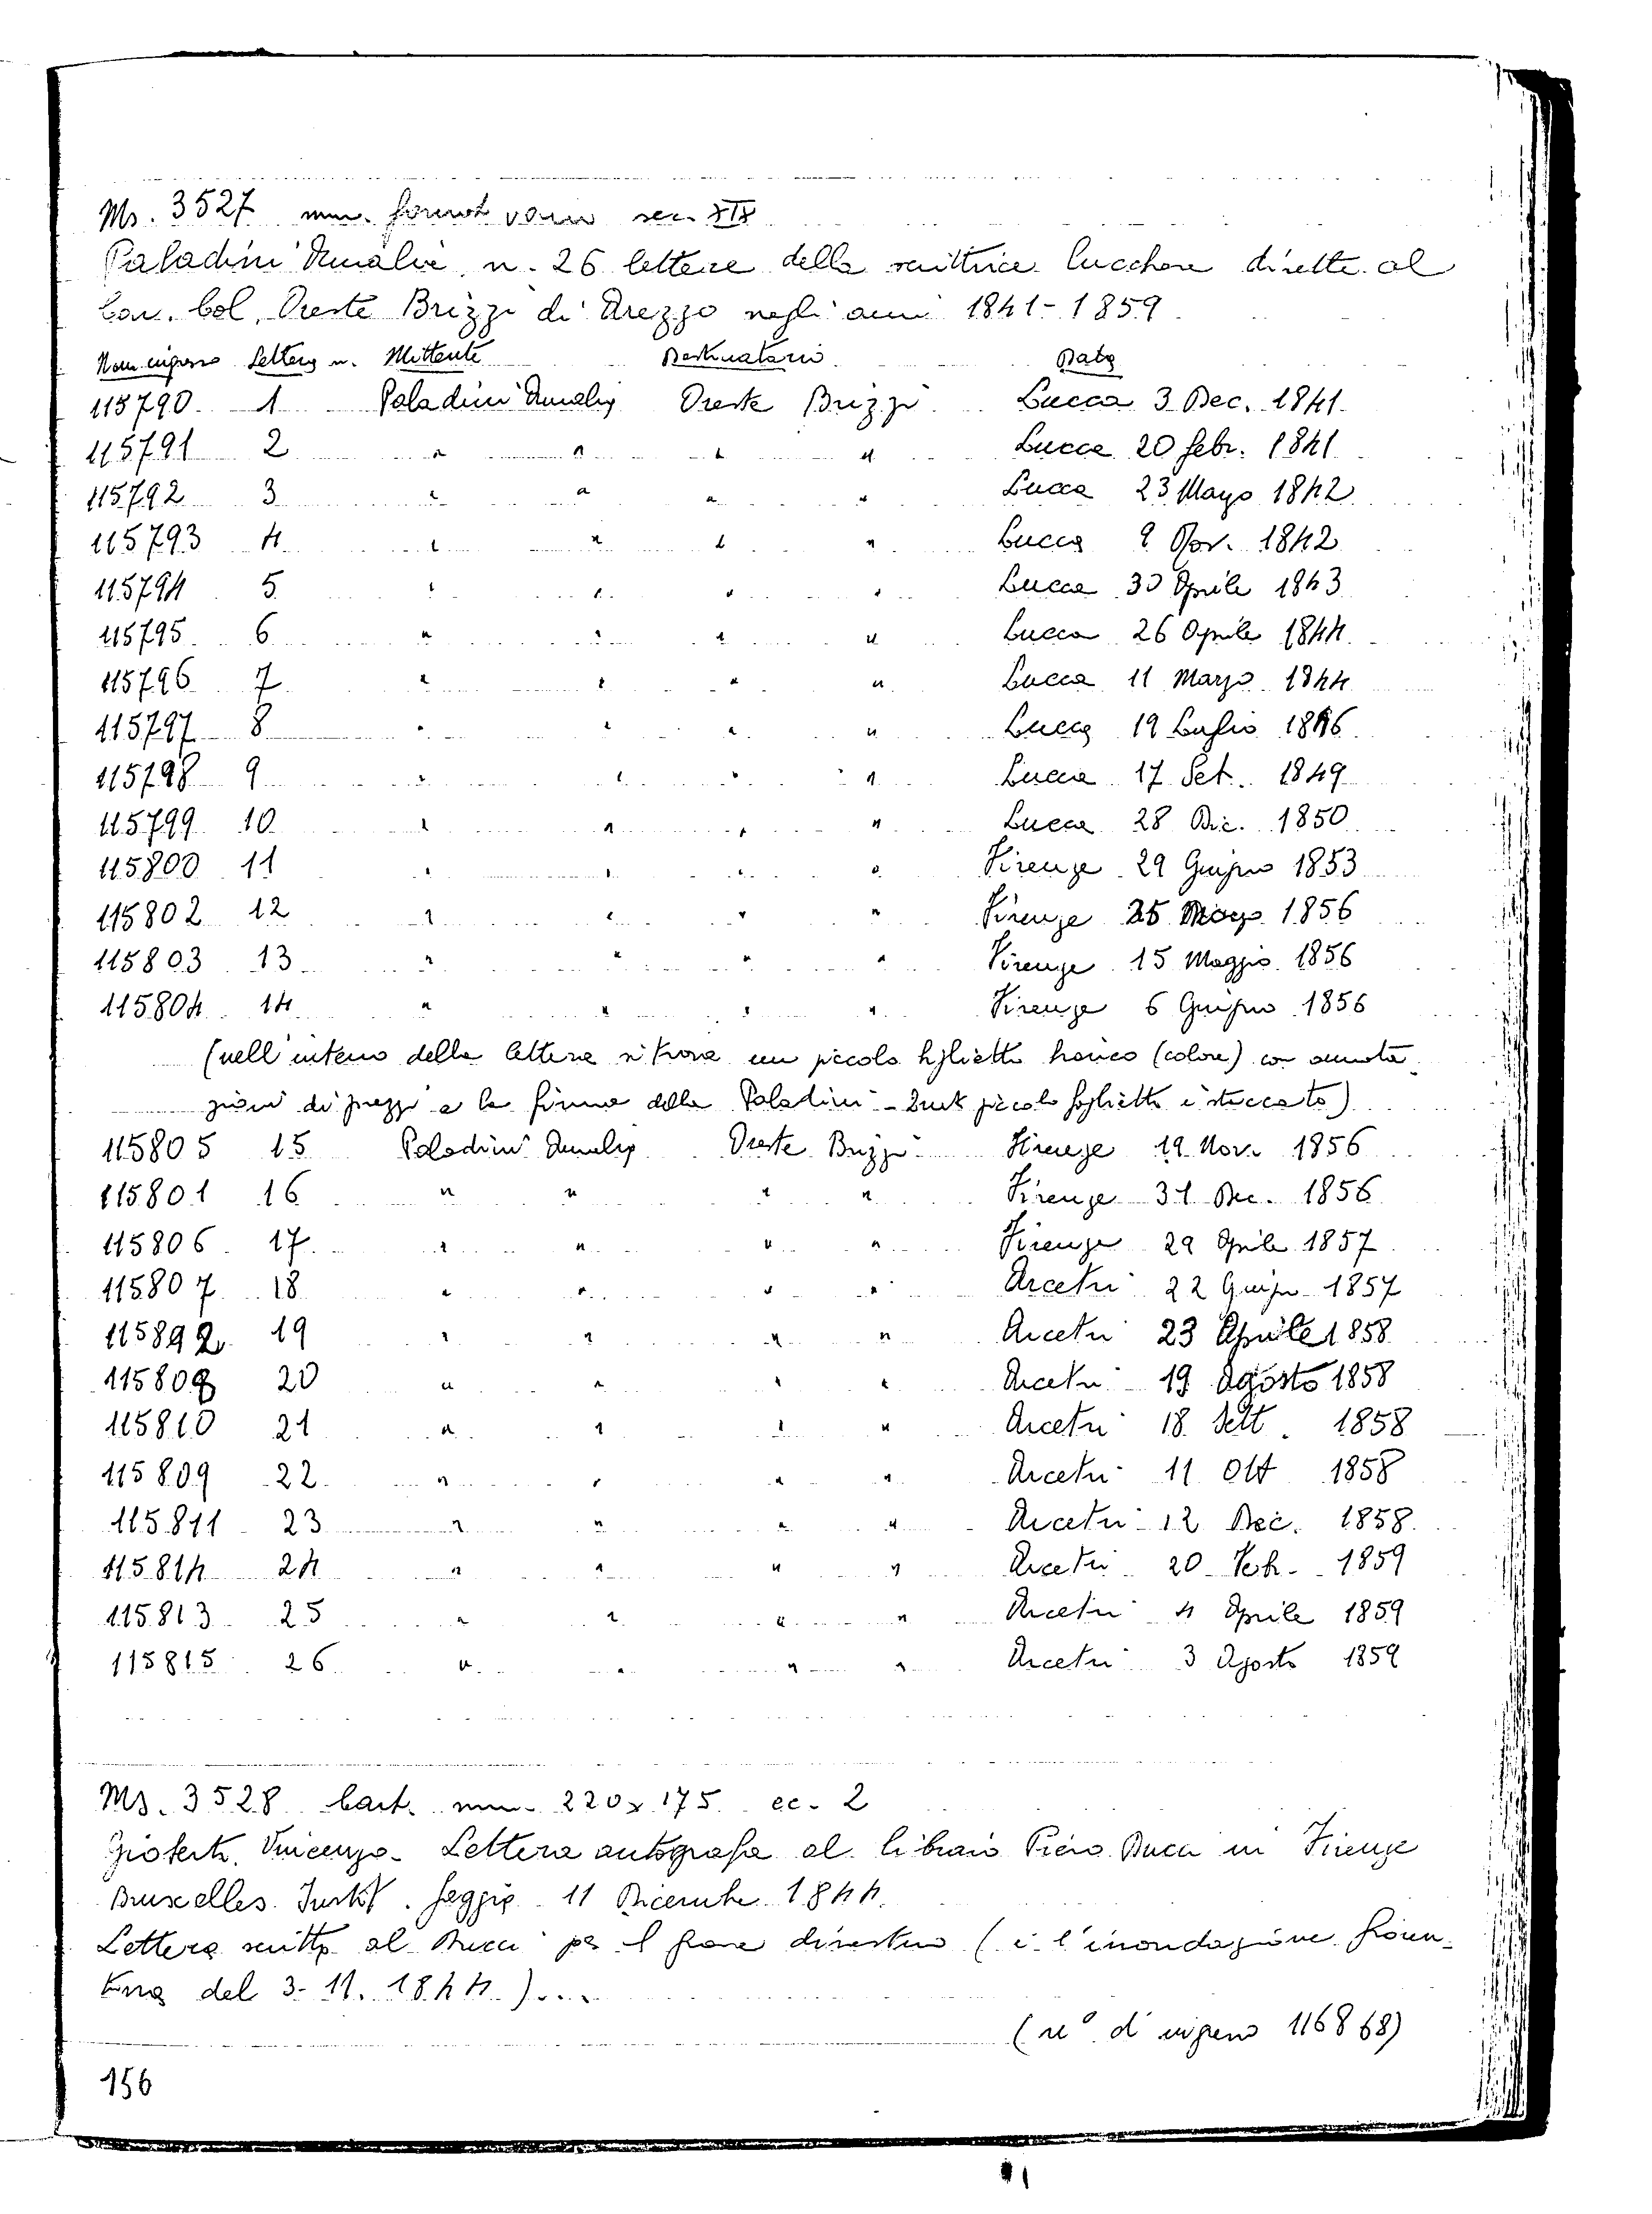 Ms. 3527 mm. format vario sec. XIX
Paladini Amalia, n. 26 lettere della scrittrice lucchese dirette al
Cav. Col. Oreste Brizzi di Arezzo negli anni 1841-1859
Num. ingresso Lettera n. Mittente Destinatario Data
115790 1 Paladini Amalia Oreste Brizzi Lucca 3 Dec. 1841
115791 2 " " " " Lucca 20 febr. 1841
115792 3 " " " " Lucca 23 1842
115793 4 " " " " Lucca 9 Nov. 1842
115794 5 " " " " Lucca 30 Aprile 1843
115795 6 " " " " Lucca 26 Aprile 1844
115796 7 " " " " Lucca 11 Marzo 1844
115797 8 " " " " Lucca 19 Luglio 1846
115798 9 " " " " Lucca 17 Set. 1849
115799 10 " " " " Lucca 28 Dic. 1850
115800 11 " " " " Firenze 29 Giugno 1853
115802 12 " " " " Firenze 25 Marzo 1856
115803 13 " " " " Firenze 15 Maggio 1856
115804 14 " " " " Firenze 6 Giugno 1856
(nell'interno della lettera si trova un piccolo foglietto bianco (colore) con annota-
zioni di prezzi e la firma della Paladini - piccolo foglietto è staccato)
115805 15 Paladini Amalia Oreste Brizzi Firenze 19 Nov. 1856
115801 16 " " " " Firenze 31 Dec. 1856
115806 17 " " " " Firenze 29 Aprile 1857
115807 18 " " " " Arcetri 22 Giugn. 1857
115892 19 " " " " Arcetri 23 Aprile 1858
115808 20 " " " " Arcetri 19 Agosto 1858
115810 21 " " " " Arcetri 18 Sett. 1858
115809 22 " " " " Arcetri 11 Ott 1858
115811 23 " " " " Arcetri 12 Dec. 1858
115814 24 " " " " Arcetri 20 Feb. 1859
115813 25 " " " " Arcetri 4 Aprile 1859
115815 26 " " " " Arcetri 3 Agosto 1859
Ms. 3528 Cart. mm. 220x175 cc. 2
Gioberti Vincenzo - Lettera autografa al libraio Piero Ducci in Firenze
Bruxelles Gaggia 11 Dicembre 1844.
Lettera scritta al Ducci per il grave disastro (è l'inondazione fioren-
tina del 3-11.1844)....
(n° d'ingresso 116868)
156